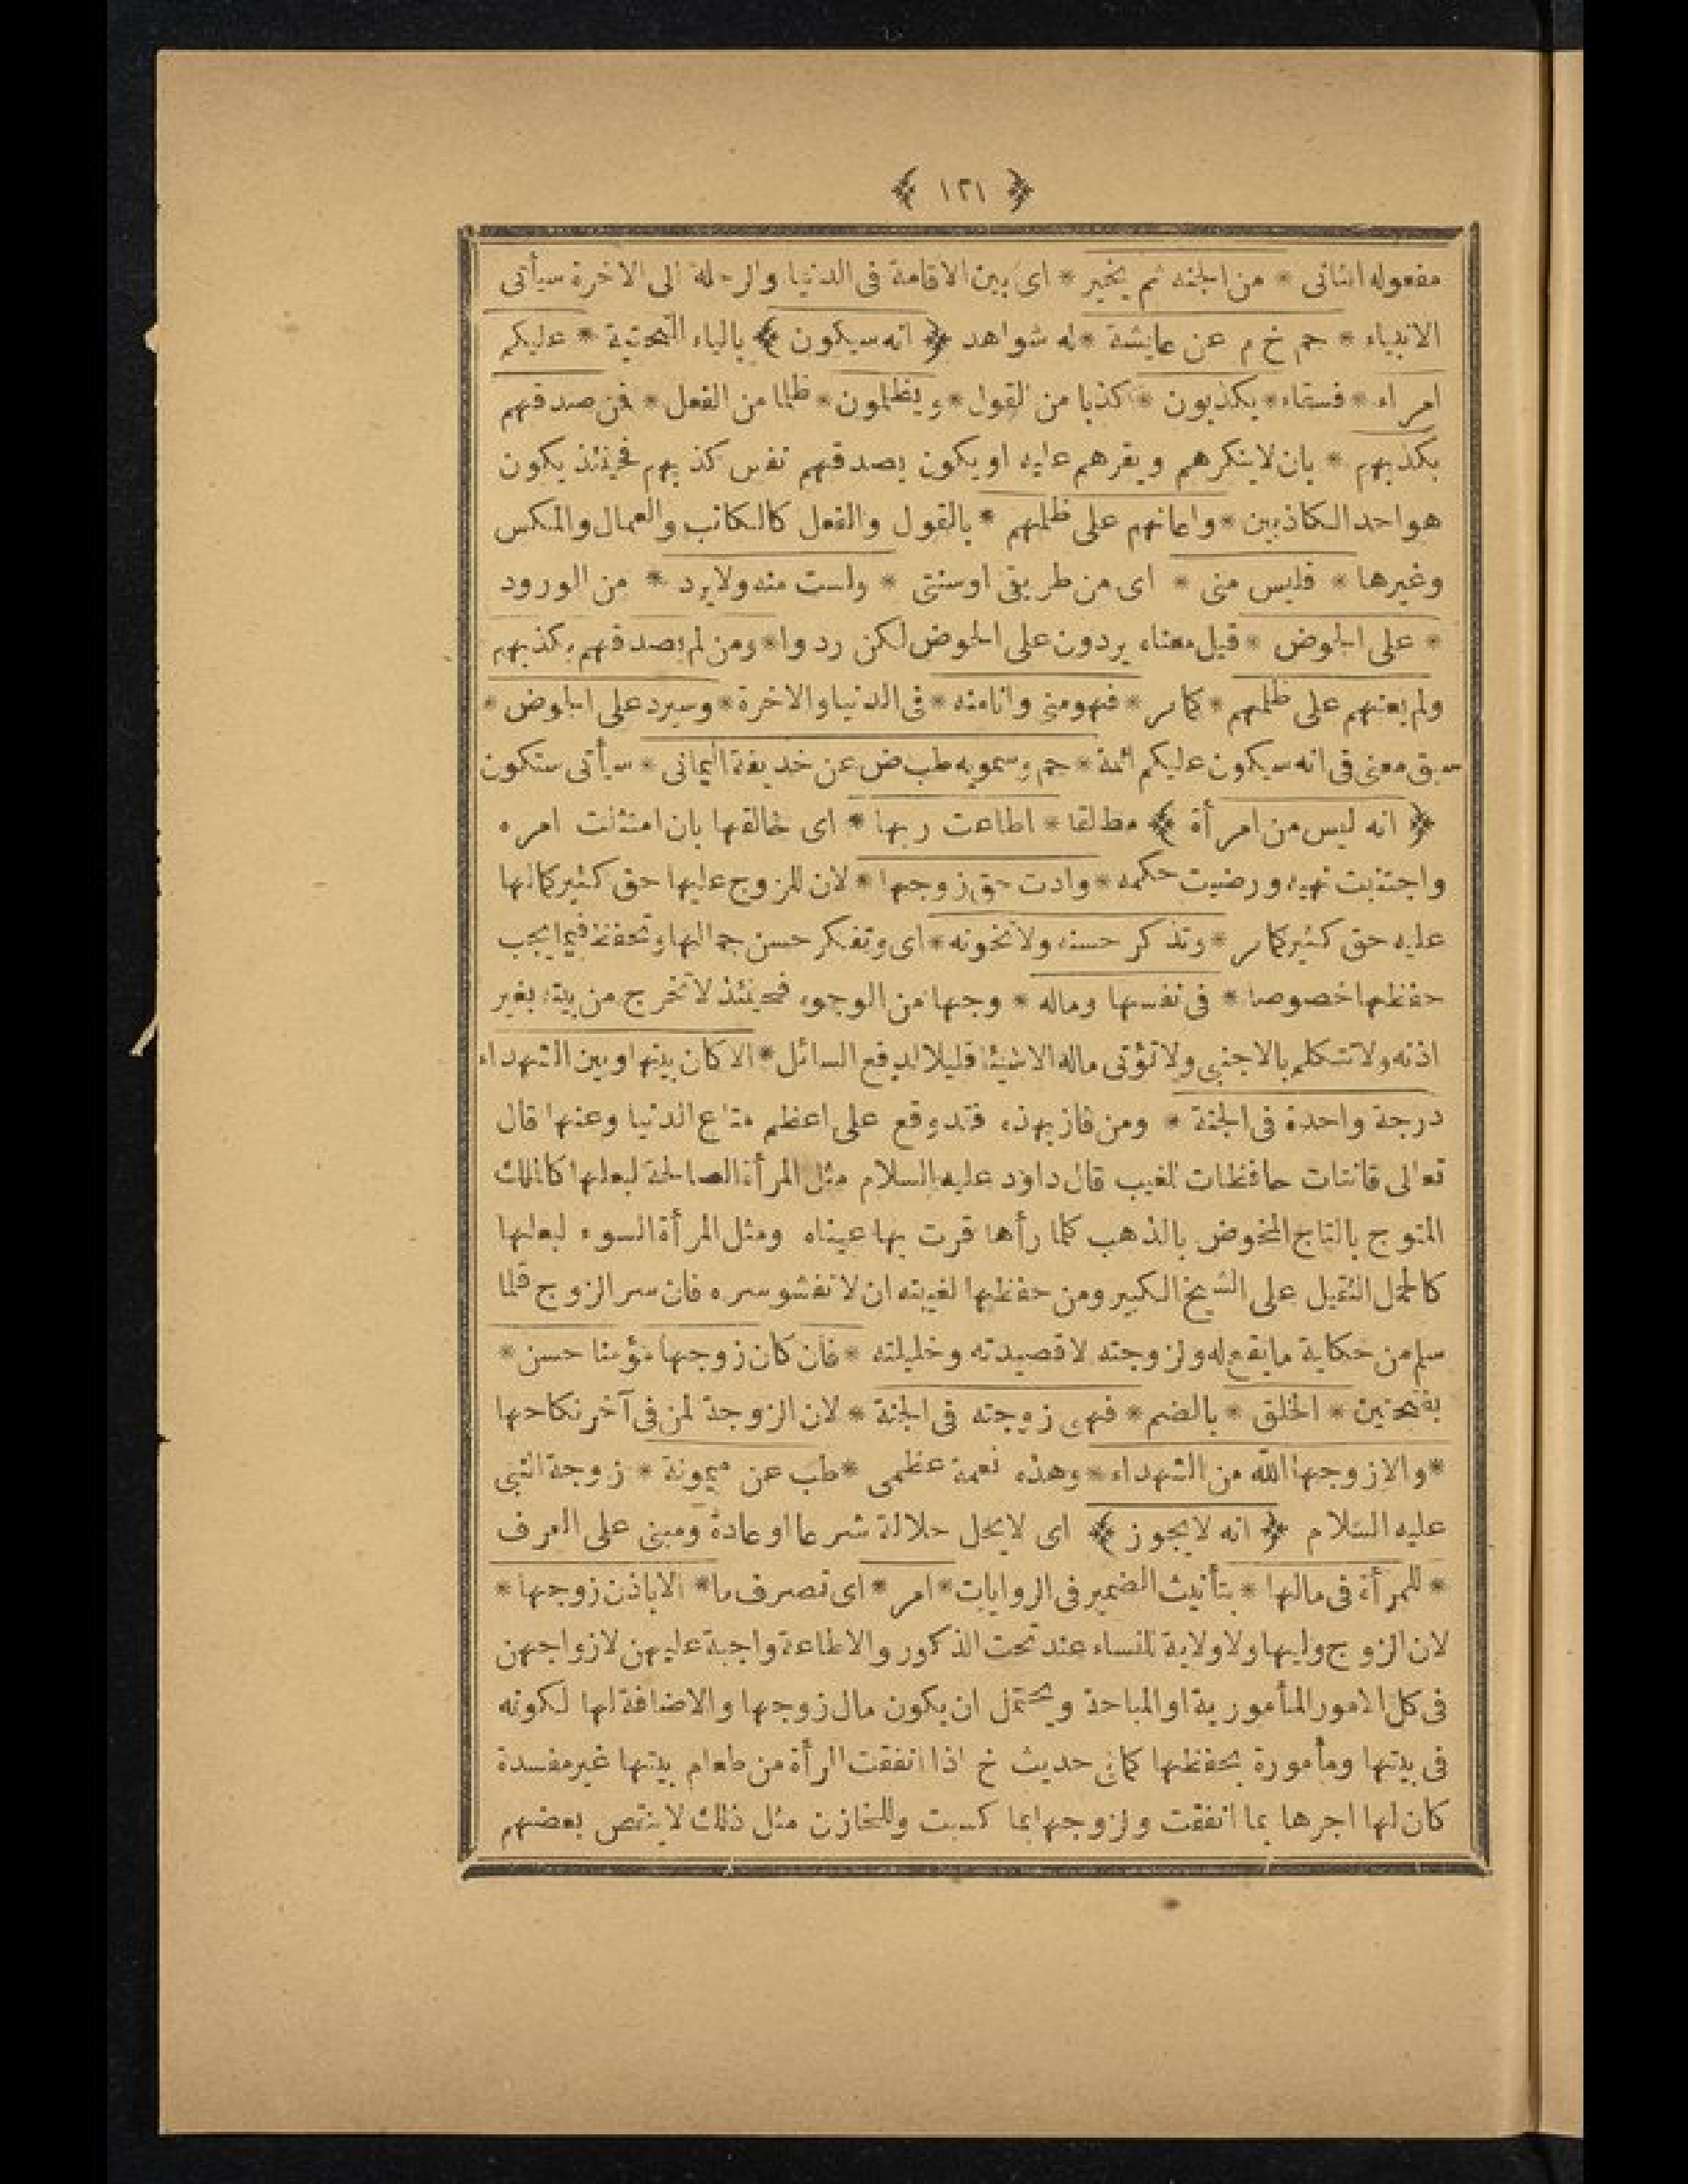 ﴿ ١٢١ ﴾
مفعوله الثانى * من الجنة ثم يخير * اى بين الاقامة فى الدنيا والرحلة الى الاخرة سيأتى
الانبياء * حم خ م عن عايشة * له شواهد ﴿ انه سيكون ﴾ بالياء التحتية * عليكم
امراء * فسقاء * يكذبون * كذبا من القول * ويظلمون * ظلما من الفعل * فمن صدقهم
بكذبهم * بان لا ينكرهم ويقرهم عليه او يكون يصدقهم نفس كذبهم فحينئذ يكون
هو احد الكاذبين * واعانهم على ظلمهم * بالقول والفعل كالكاتب والعمال والمكس
وغيرها * فليس منى * اى من طريقى اوسنتى * ولست منه ولا يرد * من الورود
* على الحوض * قيل معناه يردون على الحوض لكن ردوا * ومن لم يصدقهم بكذبهم
ولم يعنهم على ظلمهم * كمامر * فهو منى وانا منه * فى الدنيا والاخرة * وسيرد على الحوض *
سبق معنى فى انه سيكون عليكم ائمة * حم وسمويه طب ض عن حذيفة اليمانى * سيأتى ستكون
﴿ انه ليس من امرأة ﴾ مطلقا * اطاعت ربها * اى خالقها بان امتثلت امره
واجتنبت نهيه ورضيت حكمه * وادت حق زوجها * لان للزوج عليها حق كثير كما لها
عليه حق كثير كمامر * وتذكر حسنه ولا تخونه * اى وتفكر حسن جمالها وتحفظ فيما يجب
حفظها خصوصا * فى نفسها وماله * وجها من الوجوه فحينئذ لا تخرج من بيته بغير
اذنه ولا تتكلم بالاجنبى ولا تؤتى ماله الا شيئا قليلا لدفع السائل * الا كان بينها وبين الشهداء
درجة واحدة فى الجنة * ومن فاز بهذه فقد وقع على اعظم متاع الدنيا وعنها قال
تعالى قانتات حافظات للغيب قال داود عليه السلام مثل المرأة الصالحة لبعلها كالملك
المتوج بالتاج المخوض بالذهب كلما رأها قرت بها عيناه ومثل المرأة السوء لبعلها
كالحمل الثقيل على الشيخ الكبير ومن حفظها لغيبته ان لا تفشو سره فان سر الزوج قلما
سلم من حكاية ما يقع له ولزوجته لا قصيدته وخليلته * فان كان زوجها مؤمنا حسن *
بفتحتين * الخلق * بالضم * فهى زوجته فى الجنة * لان الزوجة لمن فى آخر نكاحها
* والا زوجها الله من الشهداء * وهذه نعمة عظمى * طب عن ميمونة * زوجة النبى
عليه السلام ﴿ انه لا يجوز ﴾ اى لا يحل حلالة شرعا او عادة ومبنى على العرف
* للمرأة فى مالها * بتأنيث الضمير فى الروايات * امر * اى تصرف ما * الا باذن زوجها *
لان الزوج وليها ولا ولاية للنساء عند تحت الذكور والاطاعة واجبة عليهن لازواجهن
فى كل الامور المأمورية او المباحة ويحتمل ان يكون مال زوجها والاضافة لها لكونه
فى بيتها ومأمورة بحفظها كما فى حديث خ اذا انفقت المرأة من طعام بيتها غير مفسدة
كان لها اجرها بما انفقت ولزوجها بما كسبت وللخازن مثل ذلك لا ينقص بعضهم